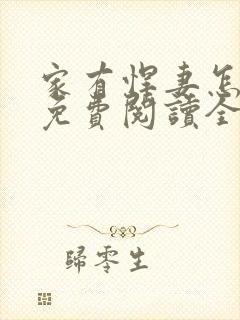 家有悍妻怎
免費閱讀全
歸零生